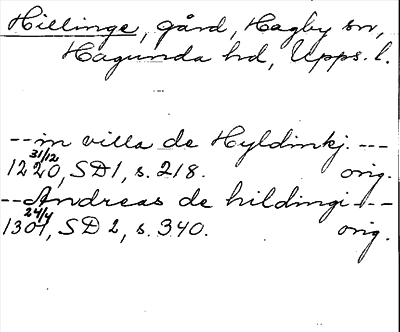 Hillinge, gård, Hagby sn,
Hagunda hd, Upps. l.
--- in villa de Hyldinkj. ---
31/12
1220, SD1, s. 218. orig.
--- Andreas de hildingi ---
24/4
1301, SD 2, s. 340. orig.